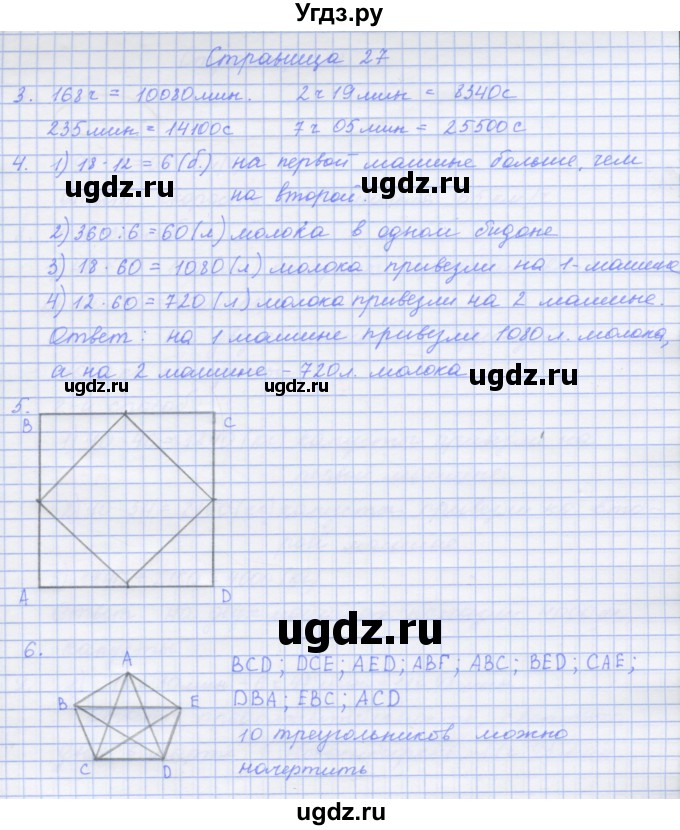 Угдз.ру
Страница 27
3. 168ч = 10080мин. 2ч 19мин = 8340с
235мин = 14100с 7ч 05мин = 25500с
4. 1) 18 - 12 = 6 (б) на первой машине больше, чем
ugdz.ru
на второй.
ugdz.ru
2) 360 : 6 = 60 (л) молока в одном бидоне
3) 18 · 60 = 1080 (л) молока привезли на 1-машине
4) 12 · 60 = 720 (л) молока привезли на 2 машине.
Ответ: на 1 машине привезли 1080 л. молока,
а на 2 машине - 720л. молока
ugdz.ru ugdz.ru ugdz.ru
5.
B C
A D
ugdz.ru
6.
A
B E
C D
BCD; DCE; AED; ABF; ABC; BED; CAE;
DBA; EBC; ACD
10 треугольников можно
начертить
ugdz.ru
ugdz.ru